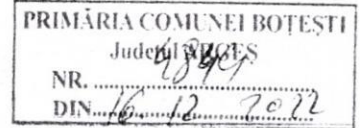 PRIMĂRIA COMUNEI BOTEȘTI
Județul ARGEȘ
NR. ....................
DIN 16. 12 2022